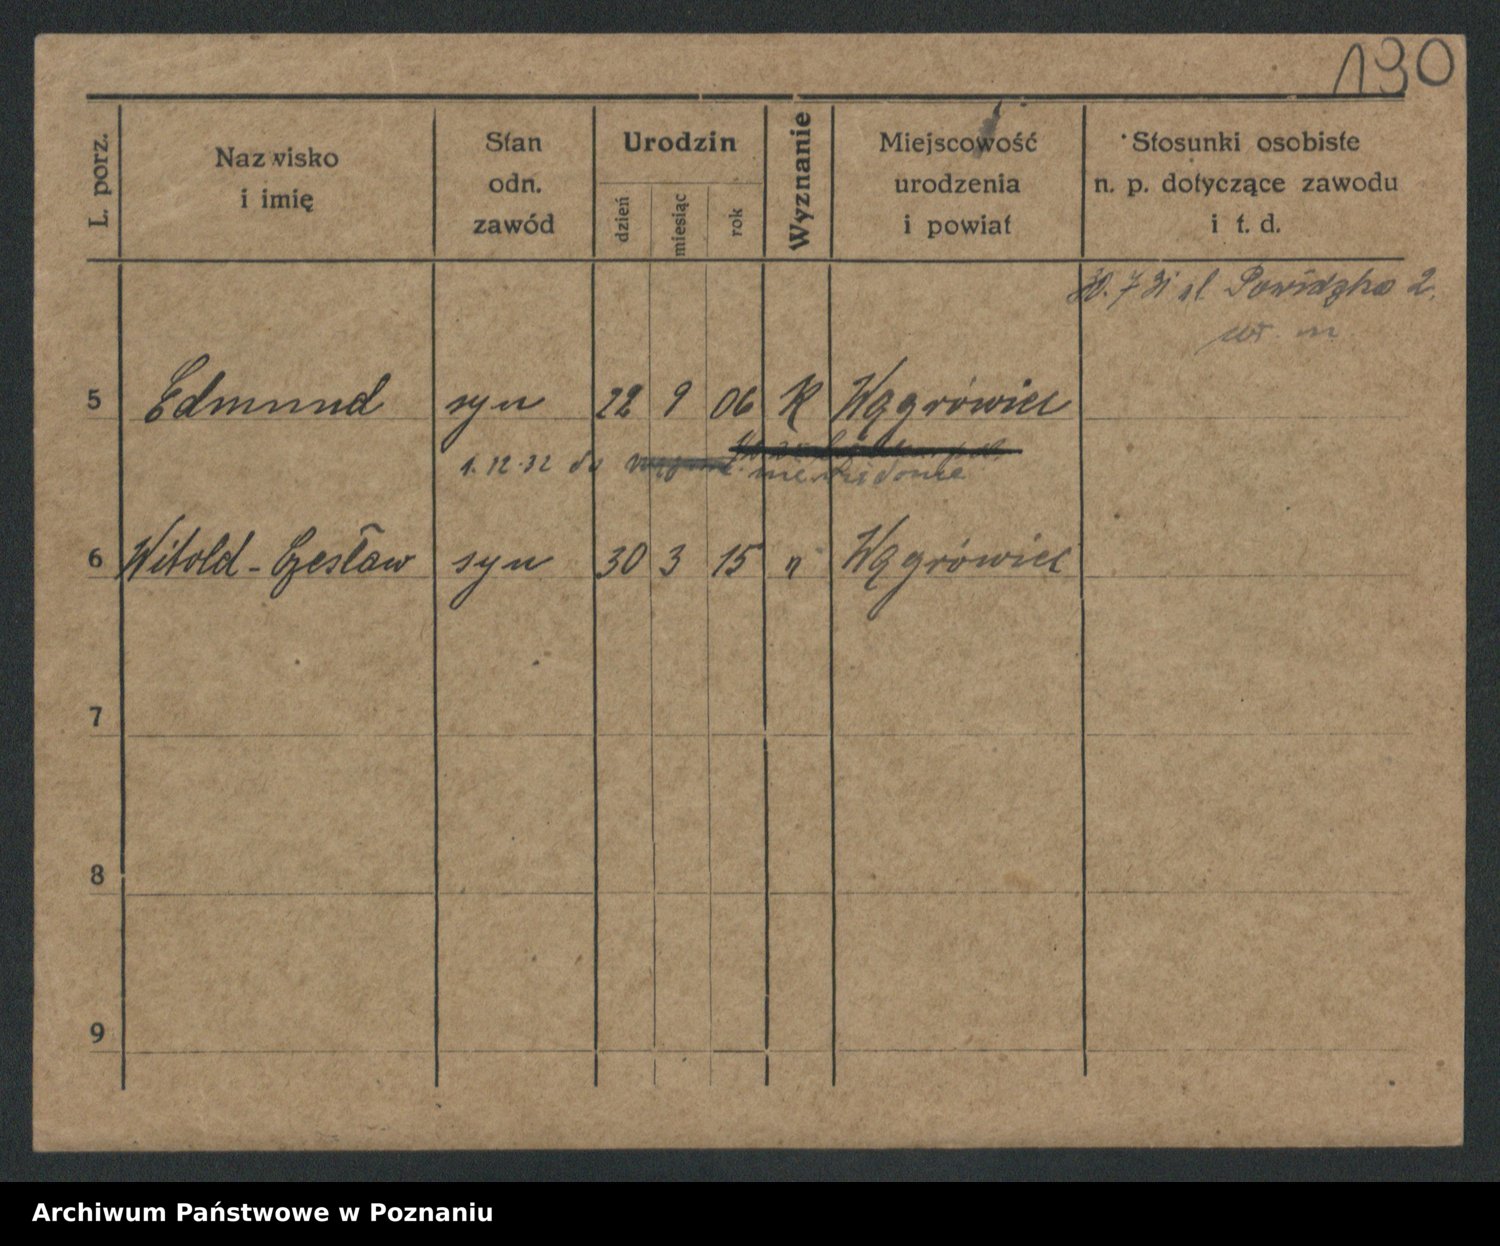 190
L. porz.
Nazwisko
i imię
Stan
odn.
zawód
Urodzin
dzień
miesiąc
rok
Wyznanie
Miejscowość
urodzenia
i powiat
Stosunki osobiste
n. p. dotyczące zawodu
i t. d.
30. 7 31 ul Powidzka 2.
5 Edmund syn 22 9 06 K Wągrówiec
1. 12. 32 do niewiadome
6 Witold - Czesław syn 30 3 15 " Wągrówiec
7
8
9
Archiwum Państwowe w Poznaniu